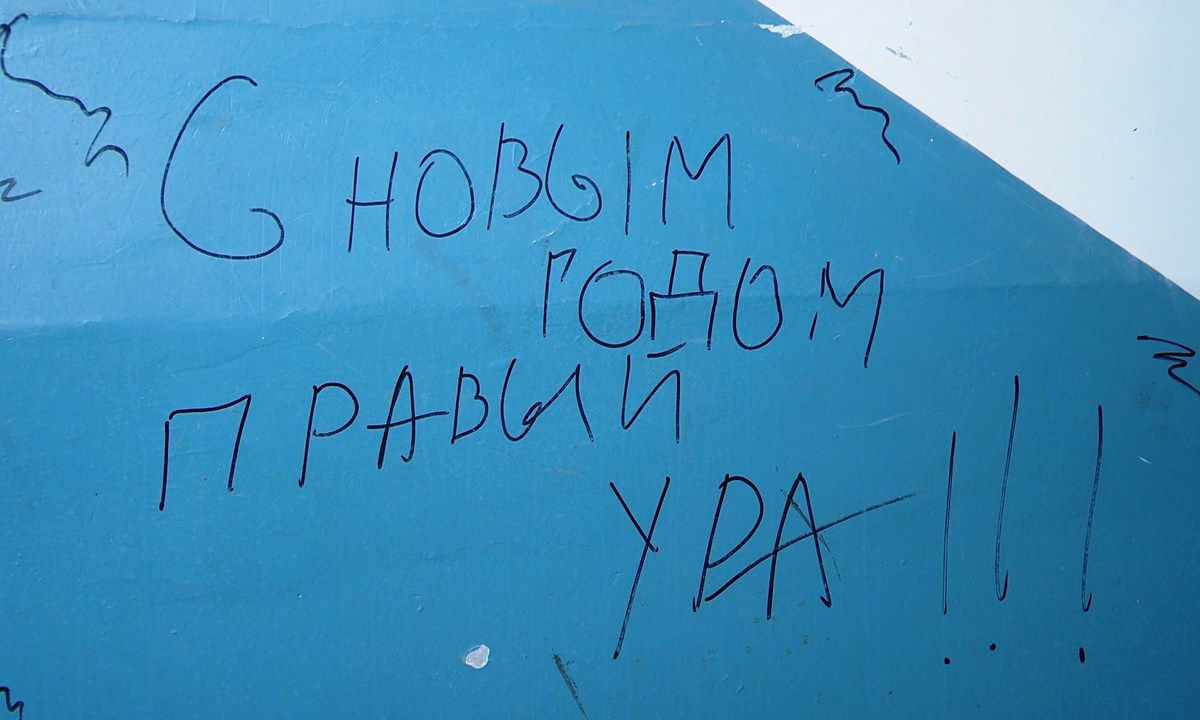 С НОВЫМ
ГОДОМ
ПРАВЫЙ
УРА!!!